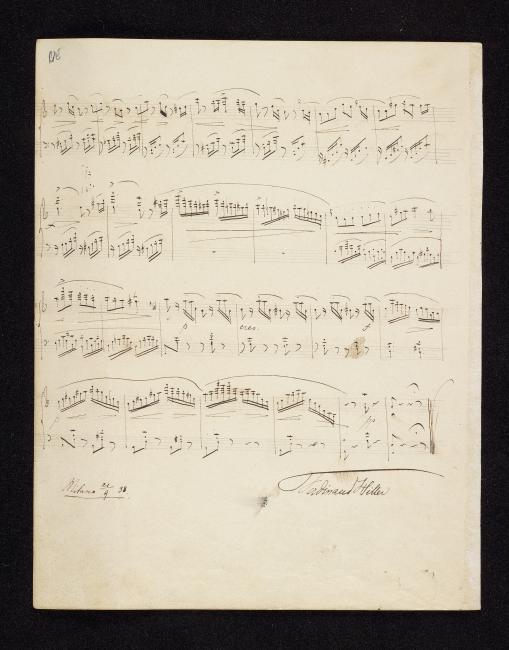 p cres. f
p
Milano 22/9 38.
Ferdinand Hiller